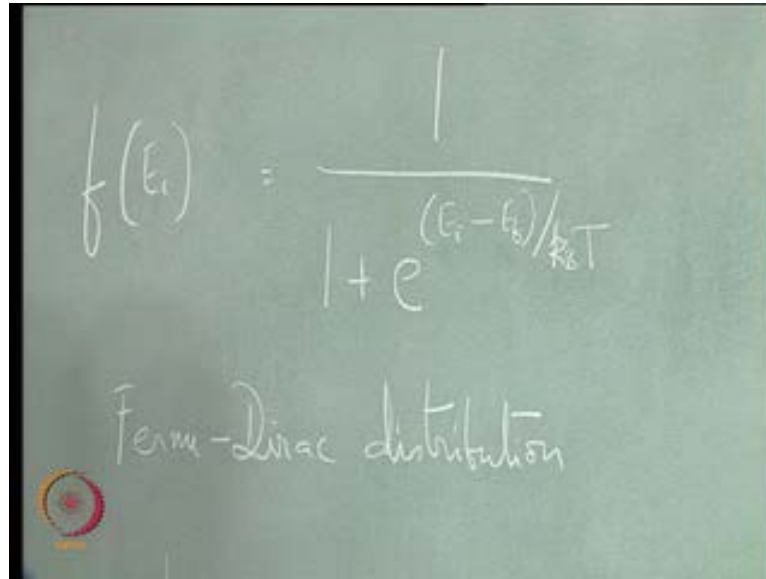 f(E_i) = 1 / (1 + e^{(E_i - E_f)/k_B T})
Fermi-Dirac distribution